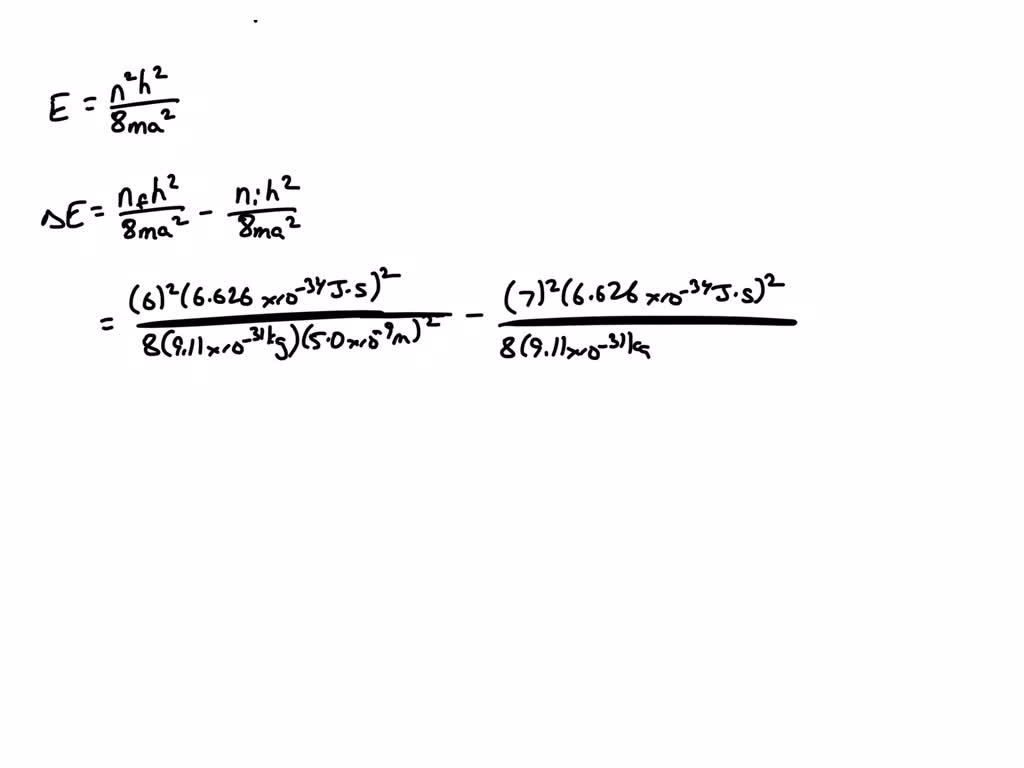 E = n²h² / 8ma²
ΔE = n_f h² / 8ma² - n_i h² / 8ma²
= (6)²(6.626 x10⁻³⁴ J·s)² / 8(9.11x10⁻³¹kg)(5.0x10⁻⁹m)² - (7)²(6.626 x10⁻³⁴ J·s)² / 8(9.11x10⁻³¹kg